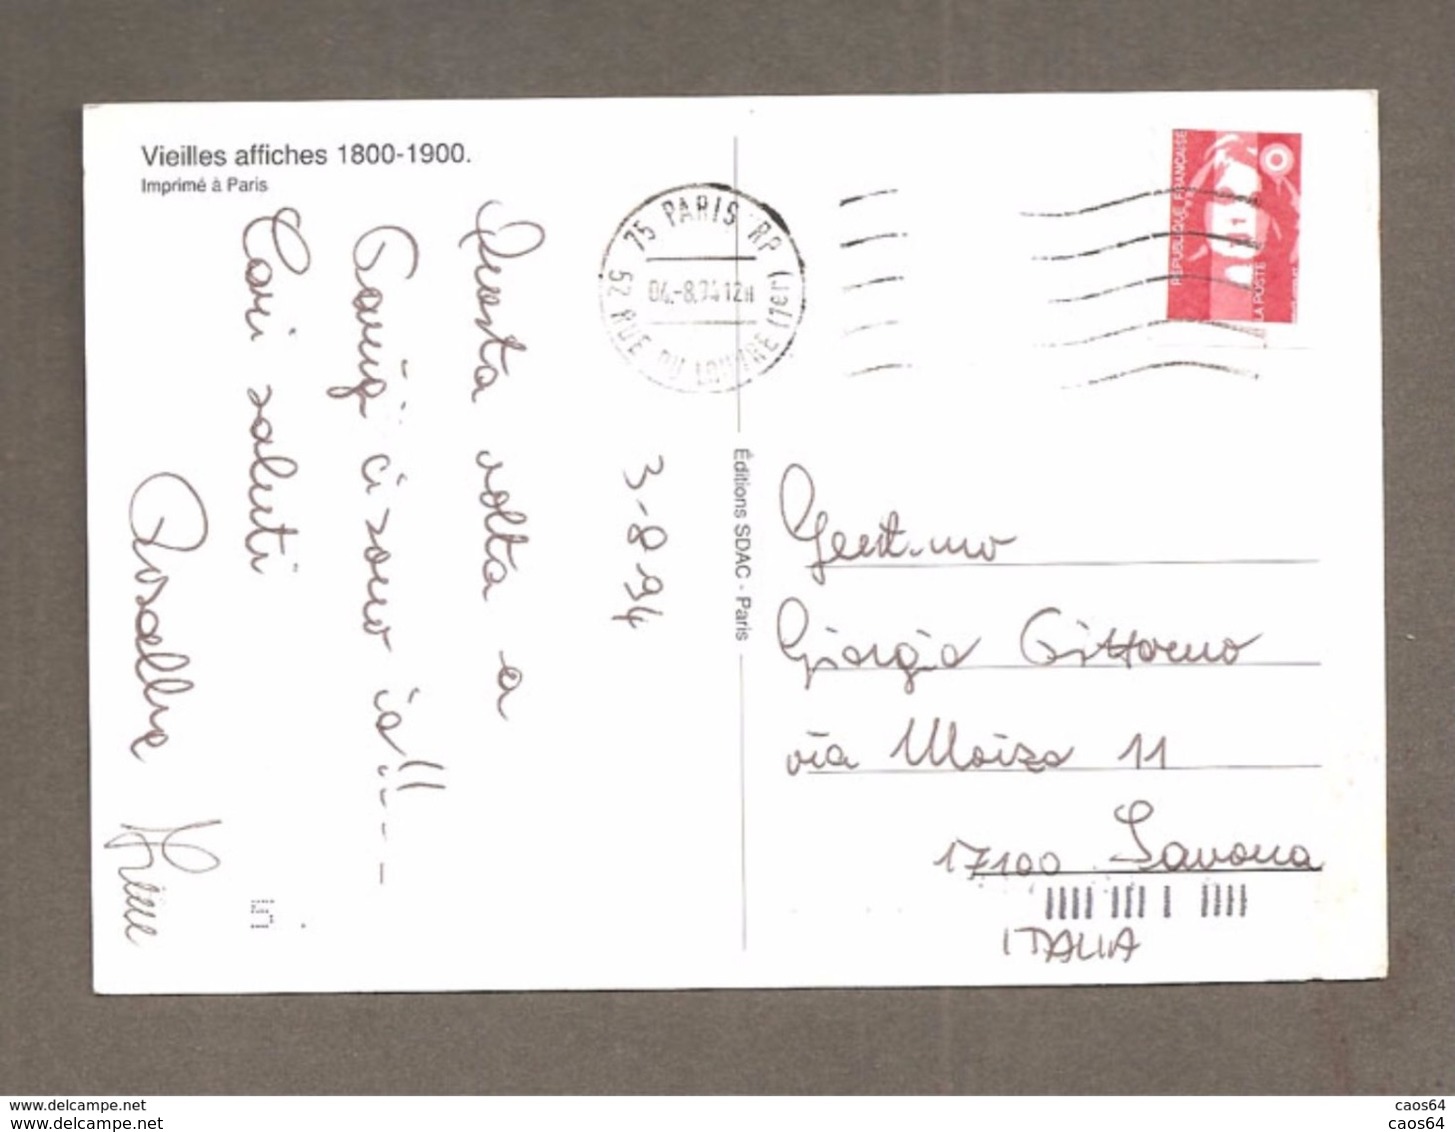 Vieilles affiches 1800-1900.
Imprimé à Paris
3-8-94
Questa volta a
Parigi ci sono io!!---
Cari saluti
75 PARIS RP (1er)
04.-8.94 12H
52 RUE DU LOUVRE
REPUBLIQUE FRANÇAISE
LA POSTE
Éditions SDAC - Paris
Gent.mo
Giorgio
via 11
17100 Savona
ITALIA
www.delcampe.net
www.delcampe.net
caos64
caos64